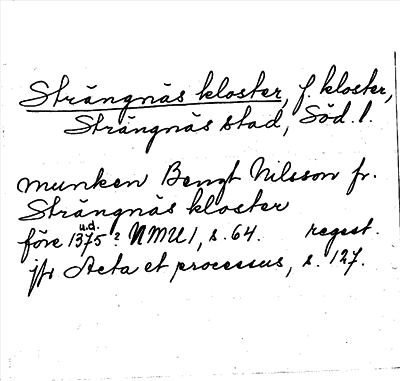 Strängnäs kloster, f. kloster,
Strängnäs stad, Söd. l.
munken Bengt Nilsson fr.
Strängnäs kloster
u.d.
före 1375? NMU 1, s. 64. regest.
jfr Acta et processus, s. 127.